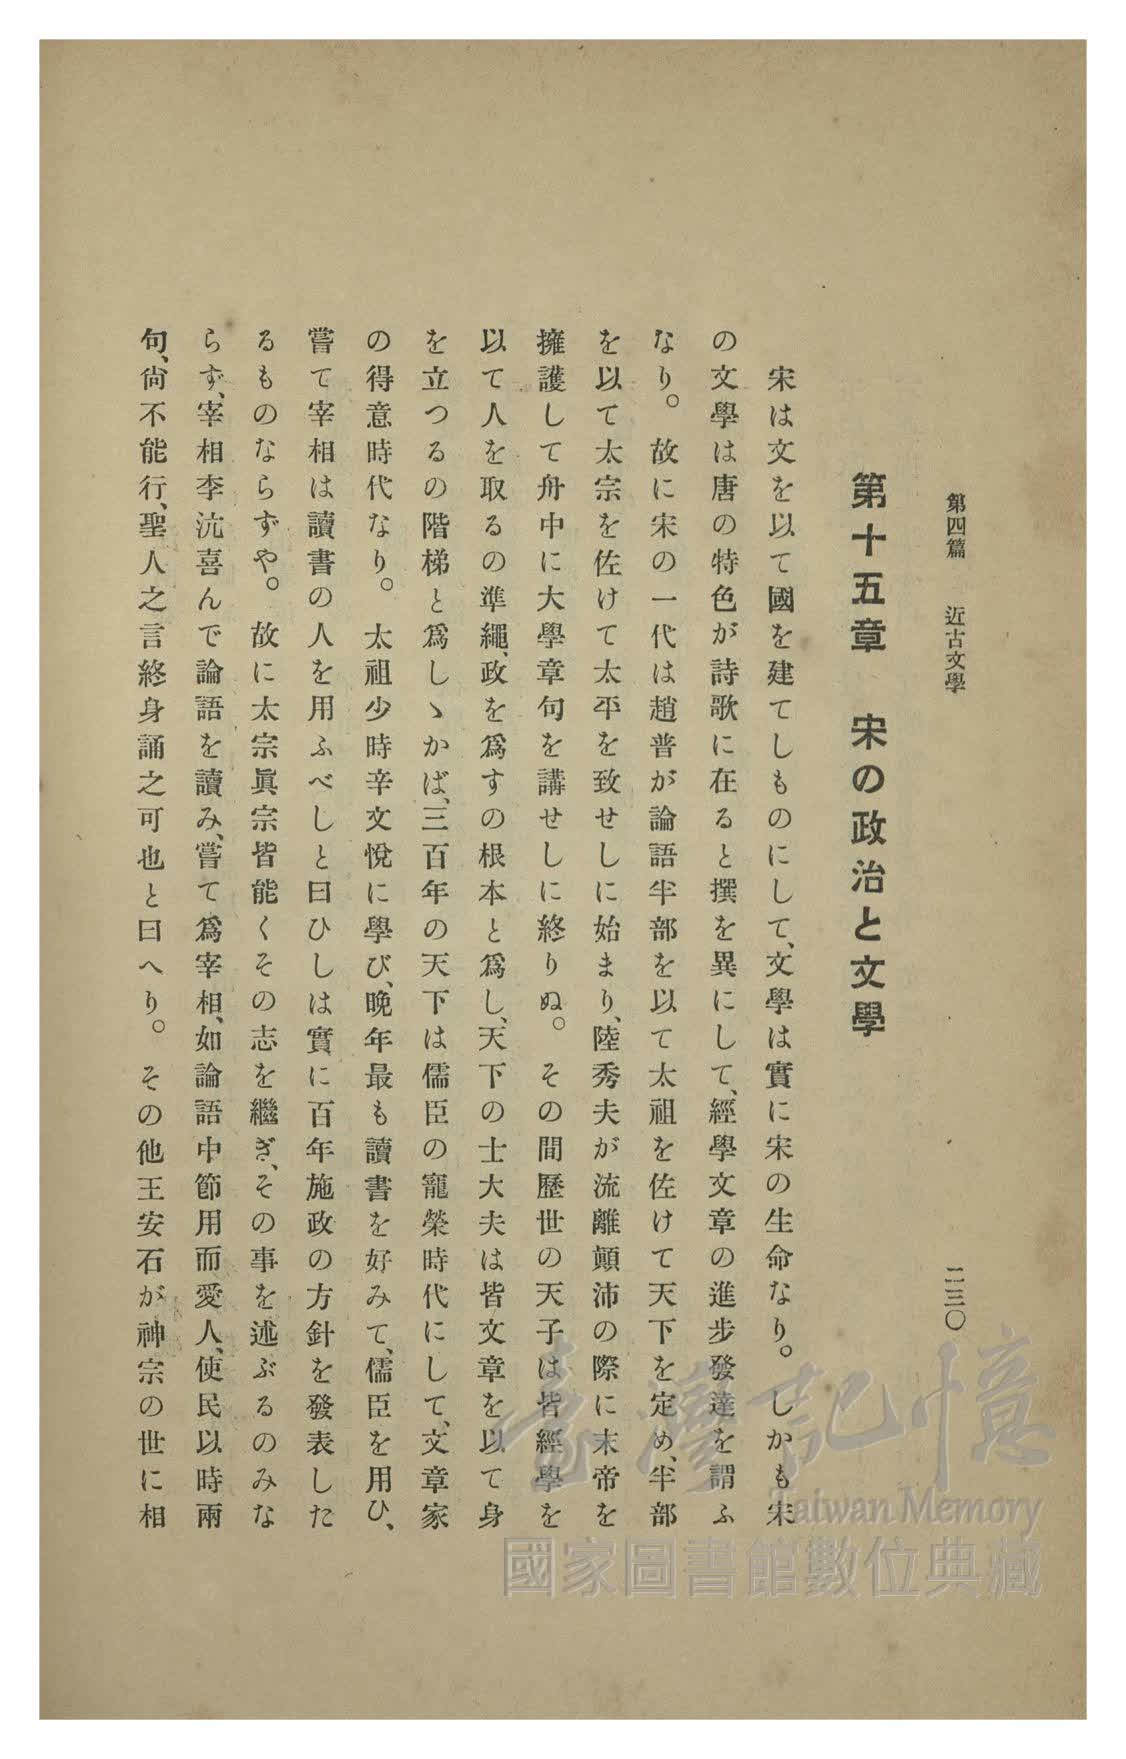 第四篇　近古文學　二三〇
第十五章　宋の政治と文學
宋は文を以て國を建てしものにして、文學は實に宋の生命なり。しかも宋
の文學は唐の特色が詩歌に在ると撰を異にして、經學文章の進步發達を謂ふ
なり。故に宋の一代は趙普が論語半部を以て太祖を佐けて天下を定め、半部
を以て太宗を佐けて太平を致せしに始まり、陸秀夫が流離顚沛の際に末帝を
擁護して舟中に大學章句を講せしに終りぬ。その間歷世の天子は皆經學を
以て人を取るの準繩、政を爲すの根本と爲し、天下の士大夫は皆文章を以て身
を立つるの階梯と爲しゝかば、三百年の天下は儒臣の寵榮時代にして、文章家
の得意時代なり。太祖少時辛文悅に學び、晩年最も讀書を好みて、儒臣を用ひ、
嘗て宰相は讀書の人を用ふべしと曰ひしは實に百年施政の方針を發表した
るものならずや。故に太宗眞宗皆能くその志を繼ぎ、その事を述ぶるのみな
らず、宰相李沆喜んで論語を讀み、嘗て爲宰相、如論語中節用而愛人、使民以時兩
句、尙不能行、聖人之言終身誦之可也と曰へり。その他王安石が神宗の世に相
臺灣記憶
Taiwan Memory
國家圖書館數位典藏